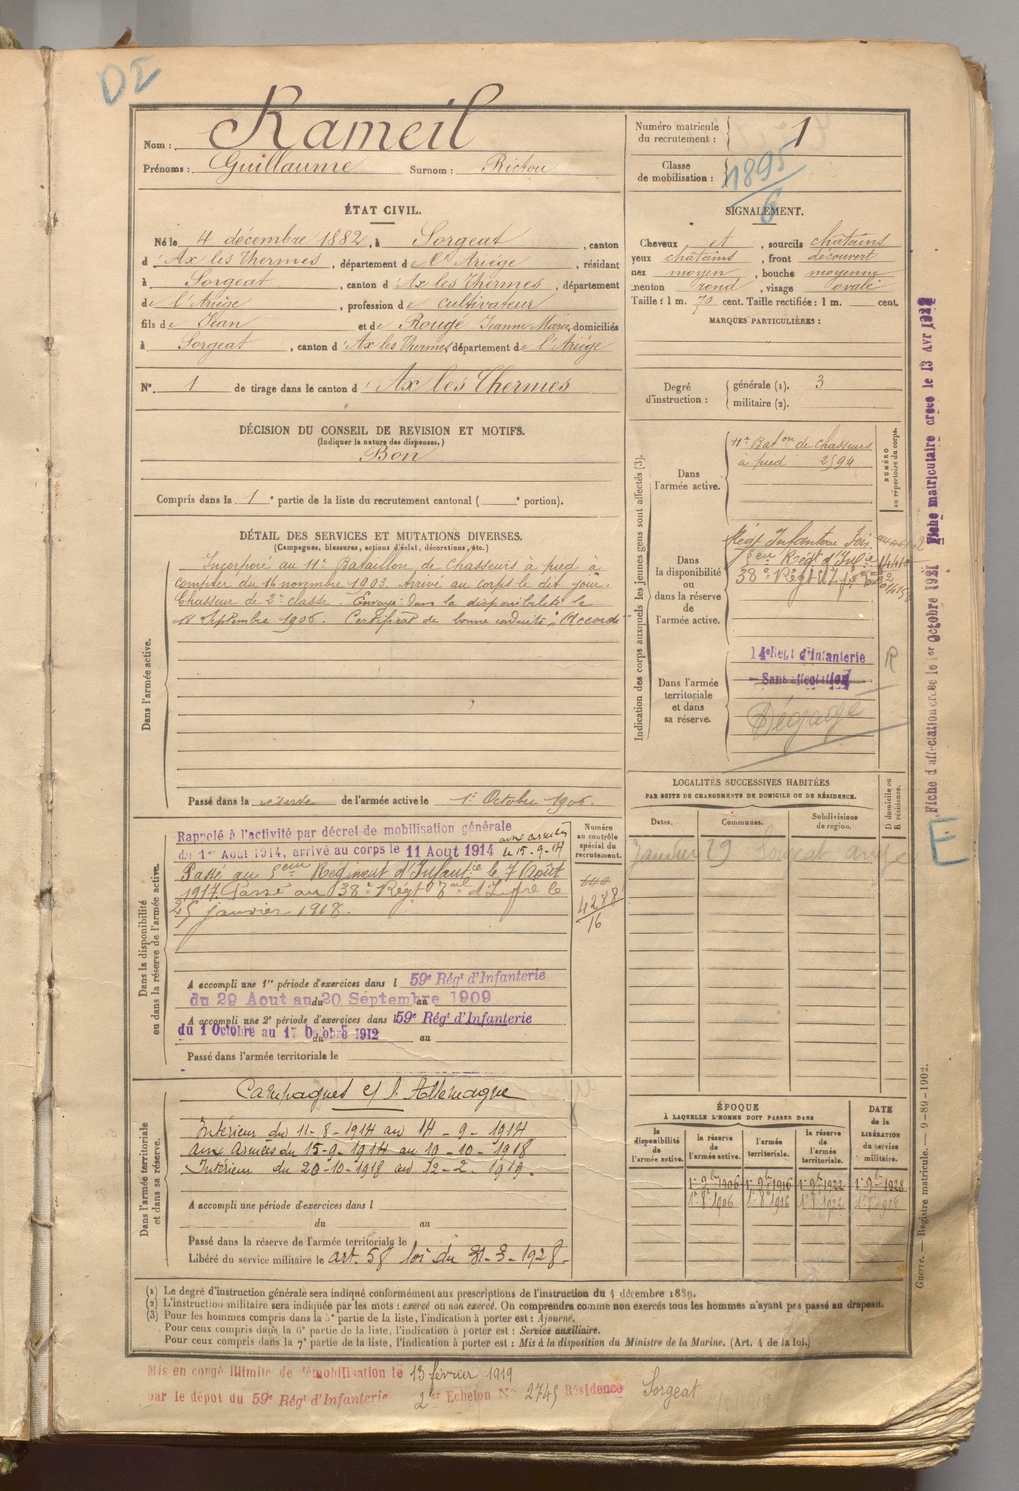 DE
Nom : Rameil
Prénoms : Guillaume Surnom : Rictou
Numéro matricule du recrutement : 1
Classe de mobilisation : 1895
6
ÉTAT CIVIL.
Né le 4 décembre 1882, à Sorgeat, canton
d'Ax les Thermes, département de l'Ariège, résidant
à Sorgeat, canton d'Ax les Thermes, département
de l'Ariège, profession de cultivateur
fils de Jean et de Rouge Jeanne Marie, domiciliés
à Sorgeat, canton d'Ax les Thermes département de l'Ariège
N° 1 de tirage dans le canton d'Ax les Thermes
SIGNALEMENT.
Cheveux et, sourcils chatains
yeux chatains, front découvert
nez moyen, bouche moyenne
menton rond, visage ovale
Taille : 1 m. 70 cent. Taille rectifiée : 1 m. cent.
MARQUES PARTICULIÈRES :
Degré d'instruction : générale (1). 3
militaire (2).
DÉCISION DU CONSEIL DE REVISION ET MOTIFS.
(Indiquer la nature des dispenses.)
Bon
Compris dans la 1e partie de la liste du recrutement cantonal ( e portion).
DÉTAIL DES SERVICES ET MUTATIONS DIVERSES.
(Campagnes, blessures, actions d'éclat, décorations, etc.)
Dans l'armée active.
Incorporé au 11e Bataillon de Chasseurs à pied à
compter du 16 novembre 1903. Arrivé au corps le dit jour.
Chasseur de 2e classe. Envoyé dans la disponibilité le
18 Septembre 1906. Certificat de bonne conduite "Accordé"
Passé dans la réserve de l'armée active le 1er Octobre 1906.
Indication des corps auxquels les jeunes gens sont affectés (3).
NUMÉRO au répertoire du corps.
Dans l'armée active.
11e Baton de Chasseurs
à pied 2594
Dans la disponibilité ou dans la réserve de l'armée active.
Régt Infanterie Foix
5em Regt d'Infie
38e Régt d'
Dans l'armée territoriale et dans sa réserve.
14e Regt d'Infanterie
Sans affectation
R
Dégagé
Fiche d'affectation créée le 1er Octobre 1921 Fiche matriculaire créée le 13 Avr 1922
E
Dans la disponibilité ou dans la réserve de l'armée active.
Numéro au contrôle spécial du recrutement.
Rappelé à l'activité par décret de mobilisation générale
du 1er Août 1914, arrivé au corps le 11 Août 1914 aux armées
le 15-9-14
Passé au 5eme Régiment d'Infantie le 7 Août
1917. Passé au 38e Régt d'Infrie le
25 janvier 1918.
4288
16
A accompli une 1re période d'exercices dans l 59e Régt d'Infanterie
du 29 Aout au 20 Septembre 1909
A accompli une 2e période d'exercices dans l 59e Régt d'Infanterie
du 1 Octobre au 17 Octobre 1912 au
Passé dans l'armée territoriale le
LOCALITÉS SUCCESSIVES HABITÉES
PAR SUITE DE CHANGEMENTS DE DOMICILE OU DE RÉSIDENCE.
Dates. Communes. Subdivisions de région. D domicile ou R résidence.
Janvier 29 Sorgeat
Dans l'armée territoriale et dans sa réserve.
Campagnes c/ l'Allemagne
Intérieur du 11-8-1914 au 14-9-1914
aux Armées du 15-9-1914 au 19-10-1918
Intérieur du 20-10-1918 au 12-2-1919.
A accompli une période d'exercices dans l
du au
Passé dans la réserve de l'armée territoriale le
Libéré du service militaire le art. 58 loi du 31-3-1928.
ÉPOQUE
À LAQUELLE L'HOMME DOIT PASSER DANS
la disponibilité de l'armée active. la réserve de l'armée active. l'armée territoriale. la réserve de l'armée territoriale. DATE de la LIBÉRATION du service militaire.
1er 9bre 1906 1er 9bre 1916 1er 9bre 1922 1er 9bre 1928
1er 8bre 1906 1er 8bre 1916 1er 8bre 1922 1er 8bre 1928
Guerre. — Registre matricule. — 9-89-1902.
(1) Le degré d'instruction générale sera indiqué conformément aux prescriptions de l'instruction du 4 décembre 1889.
(2) L'instruction militaire sera indiquée par les mots : exercé ou non exercé. On comprendra comme non exercés tous les hommes n'ayant pas passé au drapeau.
(3) Pour les hommes compris dans la 5e partie de la liste, l'indication à porter est : Ajourné.
Pour ceux compris dans la 6e partie de la liste, l'indication à porter est : Service auxiliaire.
Pour ceux compris dans la 7e partie de la liste, l'indication à porter est : Mis à la disposition du Ministre de la Marine. (Art. 4 de la loi.)
Mis en congé illimité de démobilisation le 13 février 1919
par le dépôt du 59e Régt d'Infanterie 2e Echelon N° 2745 Résidence Sorgeat